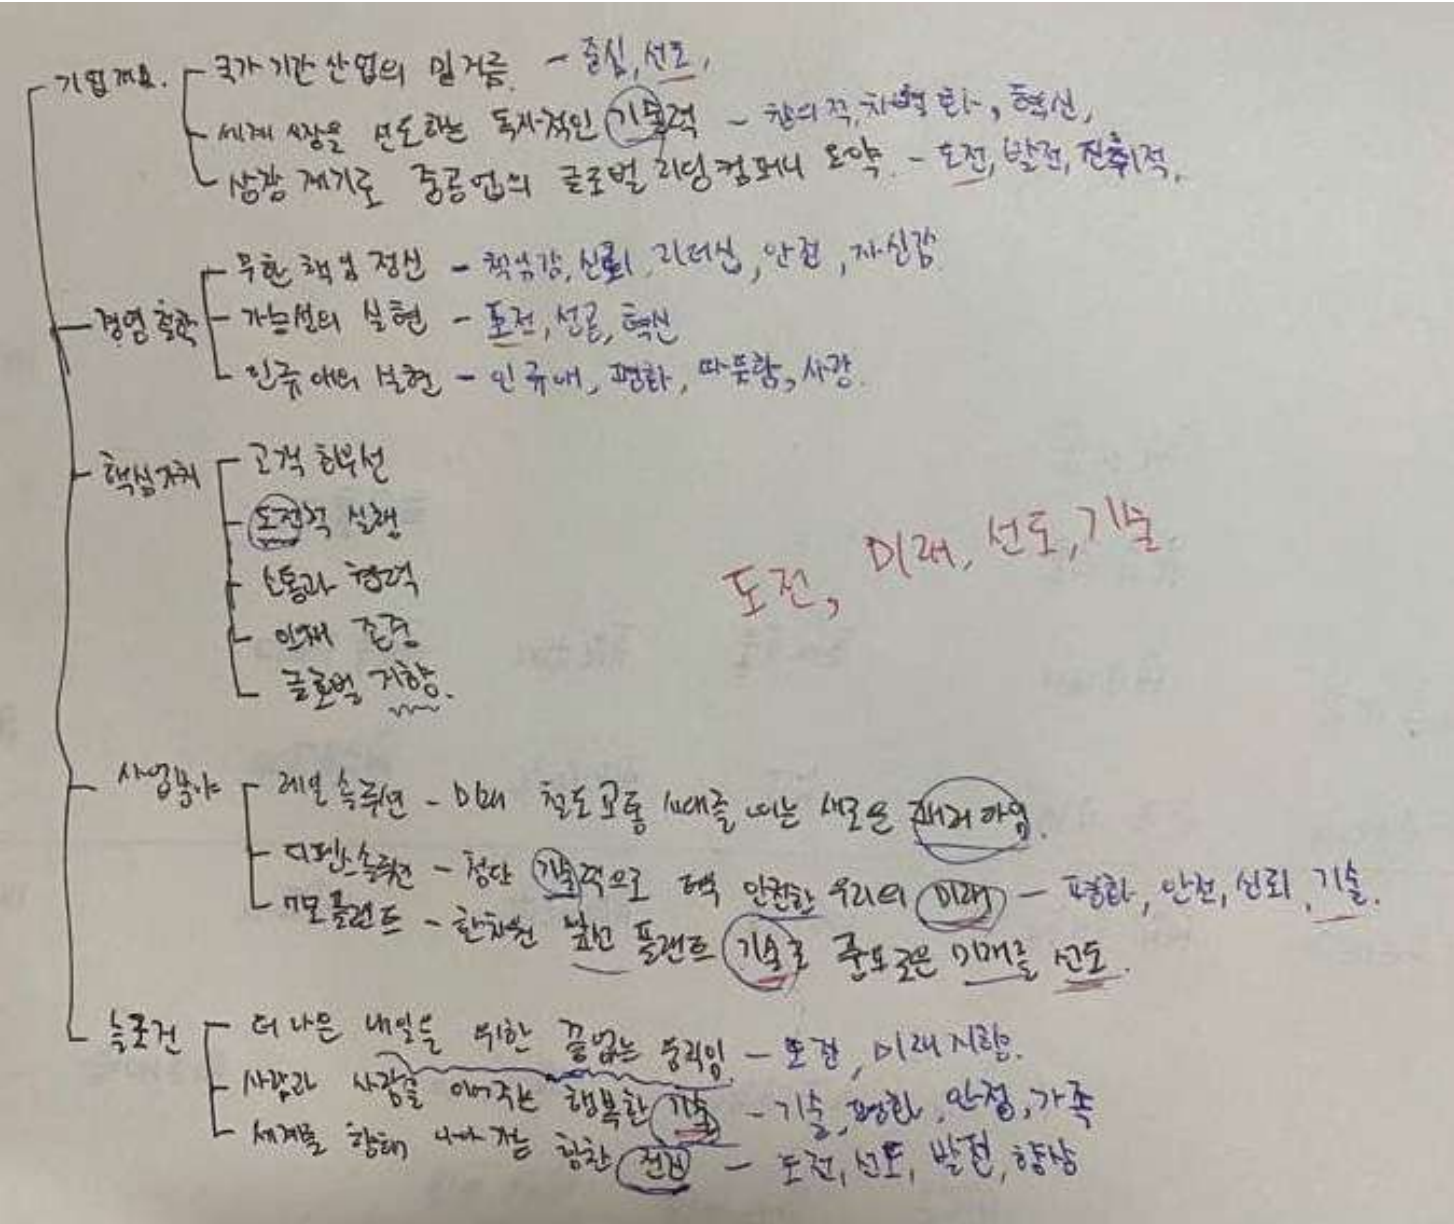 기업개요. 국가 기간 산업의 밑거름. - 중심, 선도,
세계 시장을 선도하는 독자적인 기술력 - 창의적, 차별화, 혁신,
삼강 제기로 중공업의 글로벌 리딩컴퍼니 도약. - 도전, 발전, 진취적.
경영철학 무한 책임 정신 - 책임감, 신뢰, 리더십, 안전, 자신감.
가능성의 실현 - 도전, 선골, 혁신
인류애의 실현 - 인류애, 평화, 따뜻함, 사랑.
핵심가치 고객 최우선
도전적 실행
소통과 협력
인재 존중
글로벌 지향.
도전, 미래, 선도, 기술
사업분야 레일솔루션 - 미래 철도교통 시대를 여는 새로운 패러다임.
디펜스솔루션 - 첨단 기술력으로 더욱 안전한 우리의 미래 - 평화, 안전, 신뢰, 기술.
플랜트 - 한차원 높은 플랜트 기술로 풍요로운 미래를 선도.
슬로건 더 나은 내일을 위한 끝없는 움직임 - 도전, 미래지향.
사람과 사람을 이어주는 행복한 기술 - 기술, 평화, 안정, 가족
세계를 향해 나아가는 힘찬 전진 - 도전, 선도, 발전, 향상